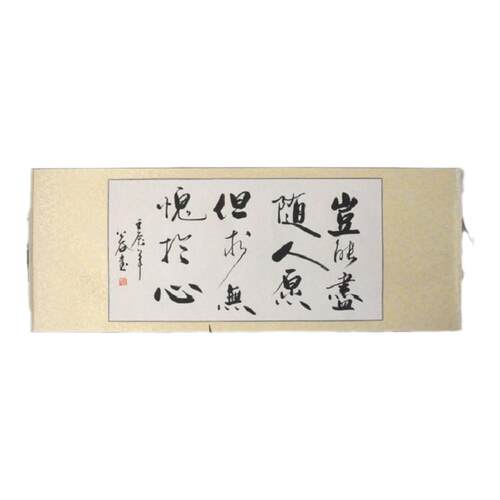 豈能盡
随人愿
但求無
愧於心
壬辰年